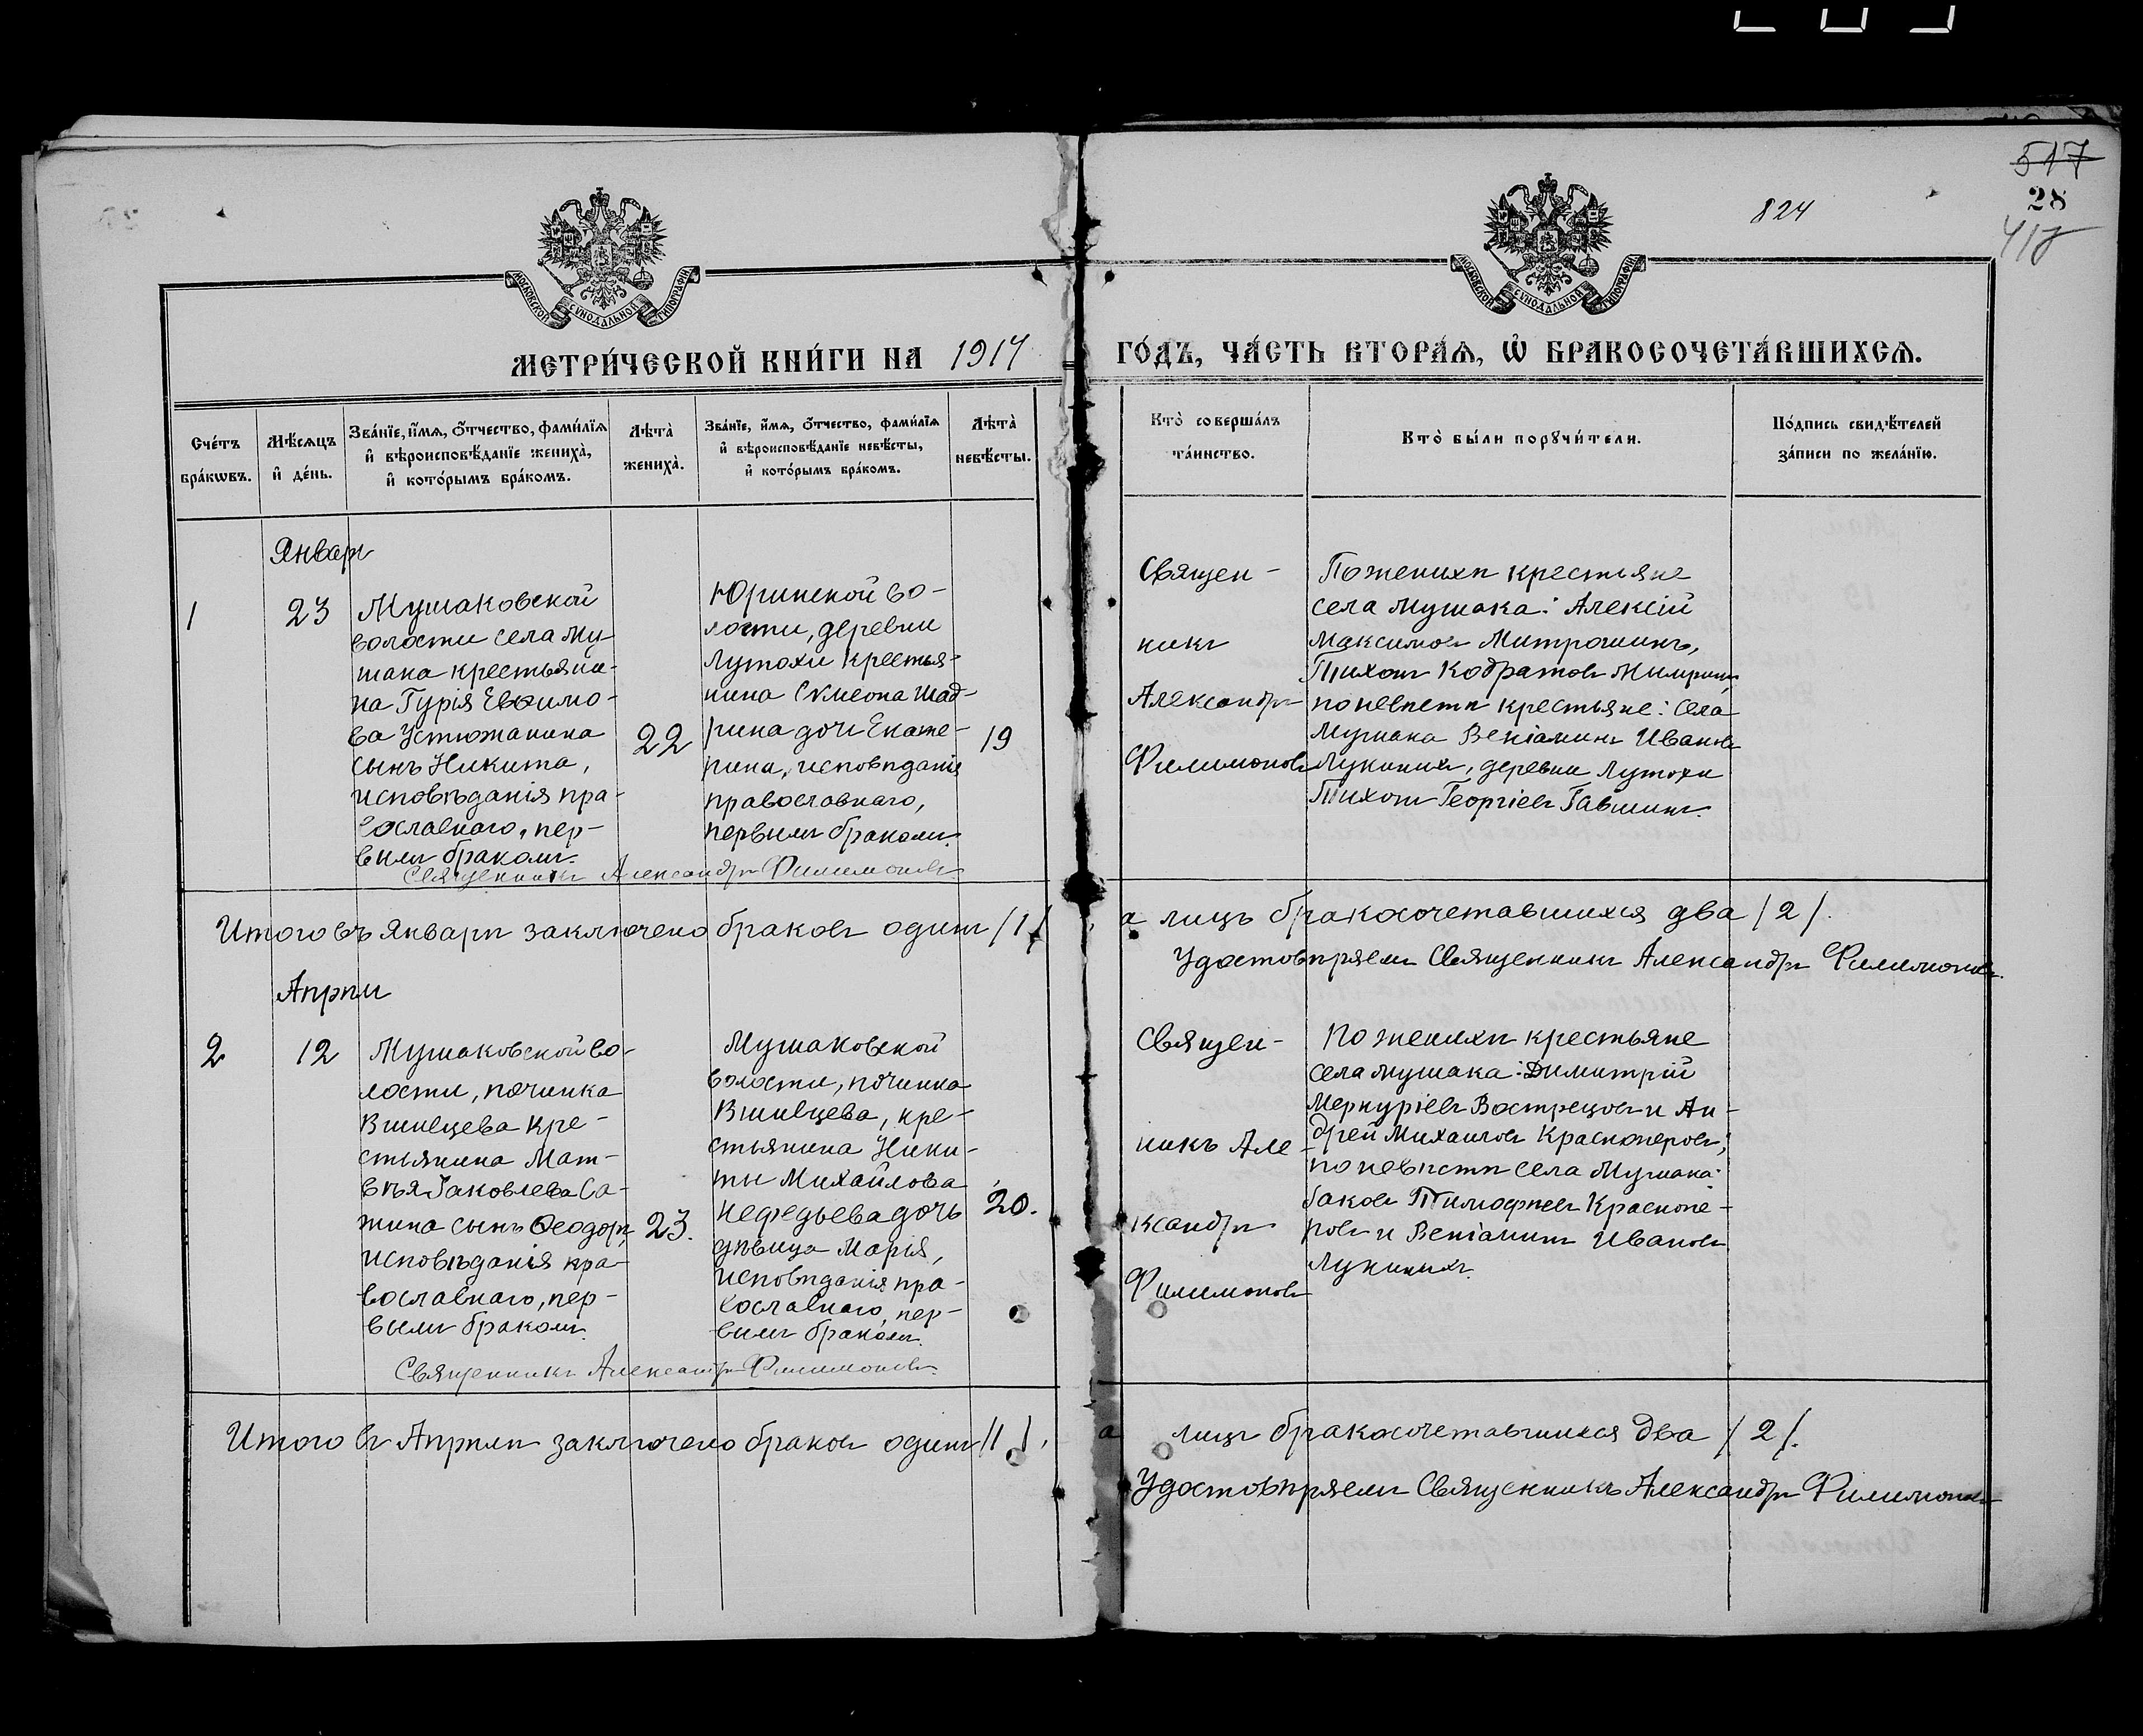 517
28
824
МОСКОВСКОЙ СѴНОДАЛЬНОЙ ТИПОГРАФІИ
МОСКОВСКОЙ СѴНОДАЛЬНОЙ ТИПОГРАФІИ
МЕТРИ́ЧЕСКОЙ КНИ́ГИ НА 1917 ГО́ДЪ, ЧА́СТЬ ВТОРА́Ѧ, Ѽ БРАКОСОЧЕТА́ВШИХСѦ.
Сче́тъ бра́кѡвъ.
Мѣ́сѧцъ и҆ де́нь.
Зва́нїе, и҆́мѧ, ѻ҆́тчество, фами́лїѧ
и҆ вѣроисповѣ́данїе жениха̀,
и҆ кото́рымъ бра́комъ.
Лѣта̀ жениха̀.
Зва́нїе, и҆́мѧ, ѻ҆́тчество, фами́лїѧ
и҆ вѣроисповѣ́данїе невѣ́сты,
и҆ кото́рымъ бра́комъ.
Лѣта̀ невѣ́сты.
Кто̀ соверша́лъ та́инство.
Кто̀ бы́ли порꙋчи́тели.
По́дпись свидѣ́телей за́писи по жела́нїю.
Январь
1
23
Мушаковской
волости села Му-
шака крестьяни-
на Гурія Евѳимо-
ва Устюжанина
сынъ Никита,
исповѣданія пра-
вославнаго, пер-
вымъ бракомъ.
22
Юринской во-
лости, деревни
Лутохи крестья-
нина Сѵмеона Шад-
рина дочь Екате-
рина, исповѣданія
православнаго,
первымъ бракомъ.
19
Священ-
никъ
Александръ
Филимоновъ
По женихѣ крестьяне
села Мушака: Алексій
Максимовъ Митрошинъ,
Тихонъ Кодратовъ
по невѣстѣ крестьяне: села
Мушака Веніаминъ Ивановъ
Лукиныхъ, деревни Лутохи
Тихонъ Георгіевъ Гавшинъ.
Священникъ Александръ Филимоновъ
Итого въ Январѣ заключено браковъ одинъ /1/, а лицъ бракосочетавшихся два /2/.
Удостовѣряемъ Священникъ Александръ Филимоновъ.
Апрѣль
2
12
Мушаковской во-
лости, починка
Вшивцева кре-
стьянина Мат-
вѣя Іаковлева Са-
жина сынъ Ѳеодоръ,
исповѣданія пра-
вославнаго, пер-
вымъ бракомъ.
23.
Мушаковской
волости, починка
Вшивцева, кре-
стьянина Ники-
ты Михайлова
Нефедьева дочь
дѣвица Марія,
исповѣданія пра-
вославнаго, пер-
вымъ бракомъ.
20.
Священ-
никъ Але-
ксандръ
Филимоновъ
По женихѣ крестьяне
села Мушака: Димитрій
Меркуріевъ Вострецовъ и Ан-
дрей Михаиловъ Красноперовъ;
по невѣстѣ села Мушака:
Іаковъ Тимофѣевъ Краснопе-
ровъ и Веніаминъ Ивановъ
Лукиныхъ.
Священникъ Александръ Филимоновъ.
Итого въ Апрѣлѣ заключено браковъ одинъ /1/, а лицъ бракосочетавшихся два /2/.
Удостовѣряемъ Священникъ Александръ Филимоновъ